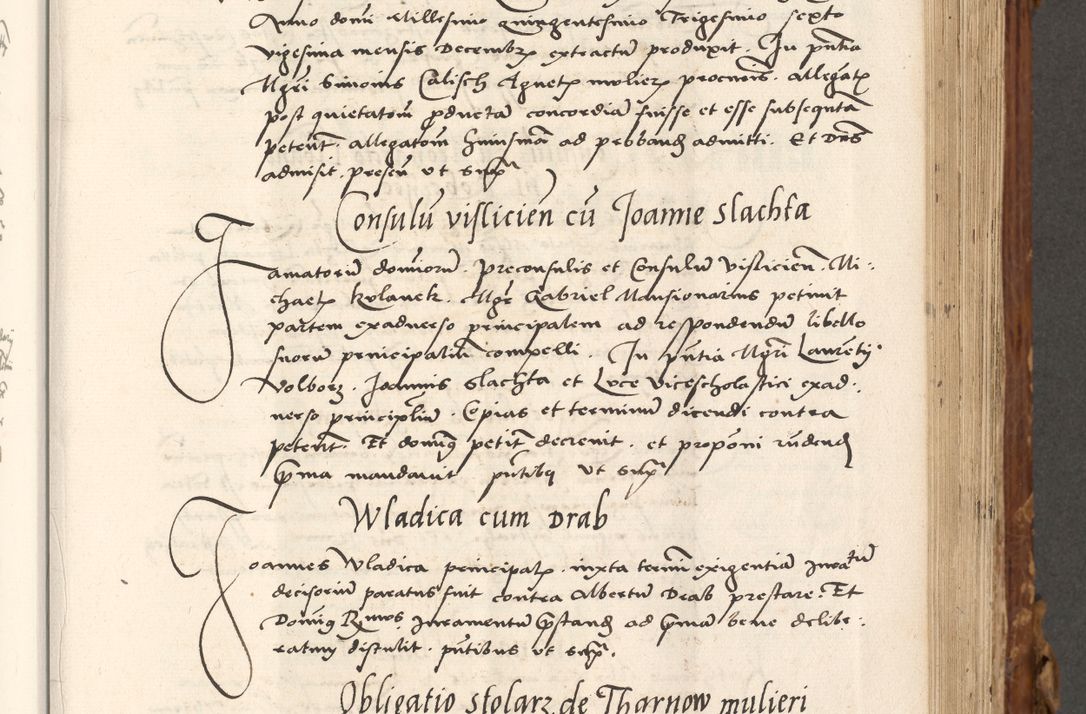 Anno domi Millesimo quingentesimo Trigesimo sexto
vigesima mensis Decembrꝫ extractum produxit. In pñtia
Mgri Simonis Calisch Agnetꝫ mulierꝫ procuris. allegatꝫ
post quietatom productam concordiam fuisse et esse subsequtam
petent. allegatom huiusmodi ad probband admitti. Et Dns
admisit. presen vt supra
Consulum visliciен cum Joanne slachta
Jamatorum domorum. Preconsulis et Consulum vislicien. Mi-
chael Kolanek. Mgr Gabriel Mansionarius petiuit
partem exaduerso principalem ad respondendum libello
suorum principalium compelli. In pñtia Mgri Laurentij
Wolborz. Joannis Slachta et Luce Vicescholastici exad-
uerso principalium. Copias et terminum dicendi contra
petent. Et dominus petit decreuit. et proponi
primam mandauit pñtibus vt supra
Wladica cum Drab
Joannes Wladica principalꝫ. iuxta termi exigentiam iuratum
decisorium paratus fuit contra Albertum Drab prestare. Et
Dominus iuramentum prestand ad primam bene delibe-
ratum distulit. pñtibus vt supra.
Obligatio stolarz de Tharnow mulieri